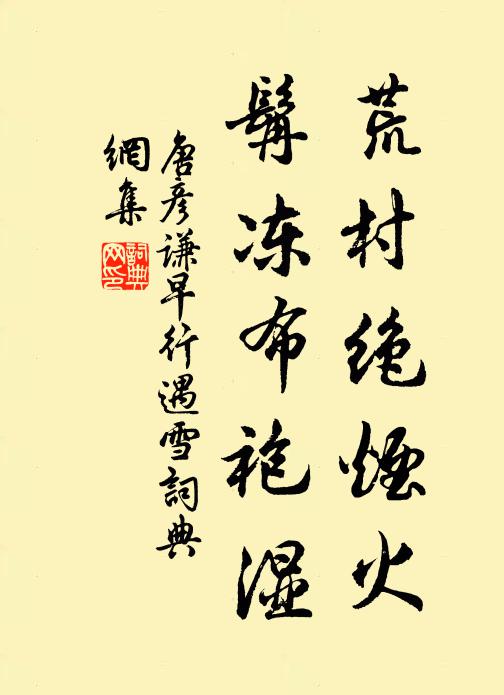 荒村绝煙火
髯冻布袍湿
唐彦谦早行遇雪詞典
網集
詞典
网印